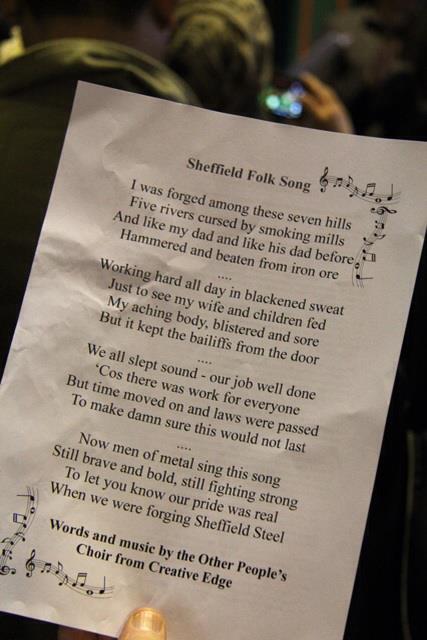 Sheffield Folk Song
I was forged among these seven hills
Five rivers cursed by smoking mills
And like my dad and like his dad before
Hammered and beaten from iron ore
....
Working hard all day in blackened sweat
Just to see my wife and children fed
My aching body, blistered and sore
But it kept the bailiffs from the door
....
We all slept sound - our job well done
‘Cos there was work for everyone
But time moved on and laws were passed
To make damn sure this would not last
....
Now men of metal sing this song
Still brave and bold, still fighting strong
To let you know our pride was real
When we were forging Sheffield Steel
Words and music by the Other People’s
Choir from Creative Edge